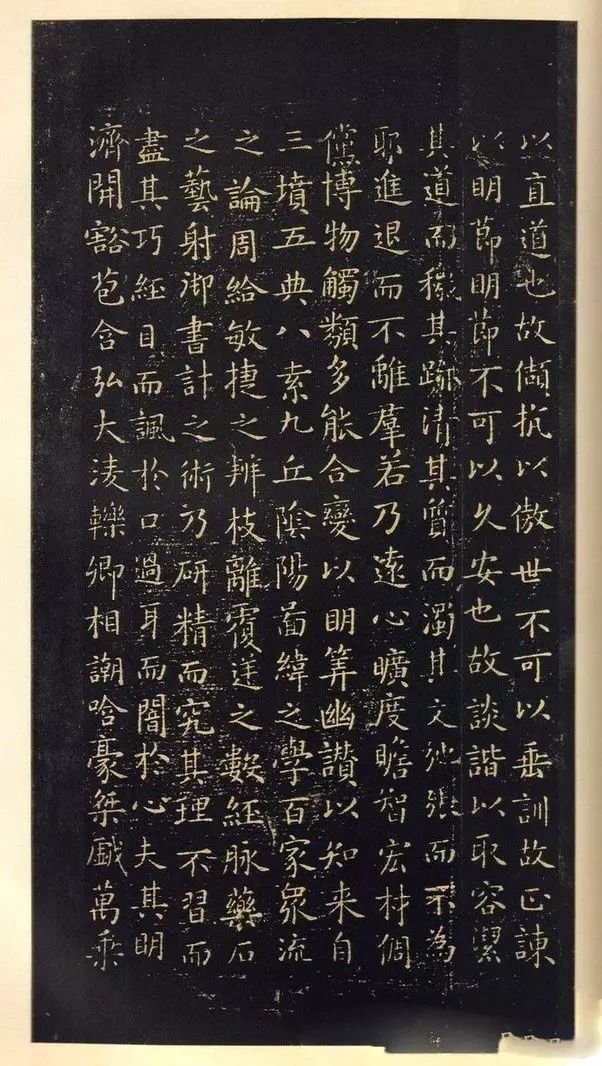 以直道也故傾抗以傲世不可以垂訓故正諫
以明節明節不可以久安也故談諧以取容潔
其道而穢其跡清其質而濁其文弛張而不為
耶進退而不離羣若乃遠心曠度瞻智宏材倜
儻博物觸類多能合變以明筭幽讚以知来自
三墳五典八素九丘陰陽啚緯之學百家眾流
之論周給敏捷之辨枝離覆逆之數經脉藥石
之藝射御書計之術乃研精而究其理不習而
盡其巧經目而諷於口過耳而闇於心夫其明
濟開豁苞含弘大淩轢卿相謿哈豪桀戲萬乘